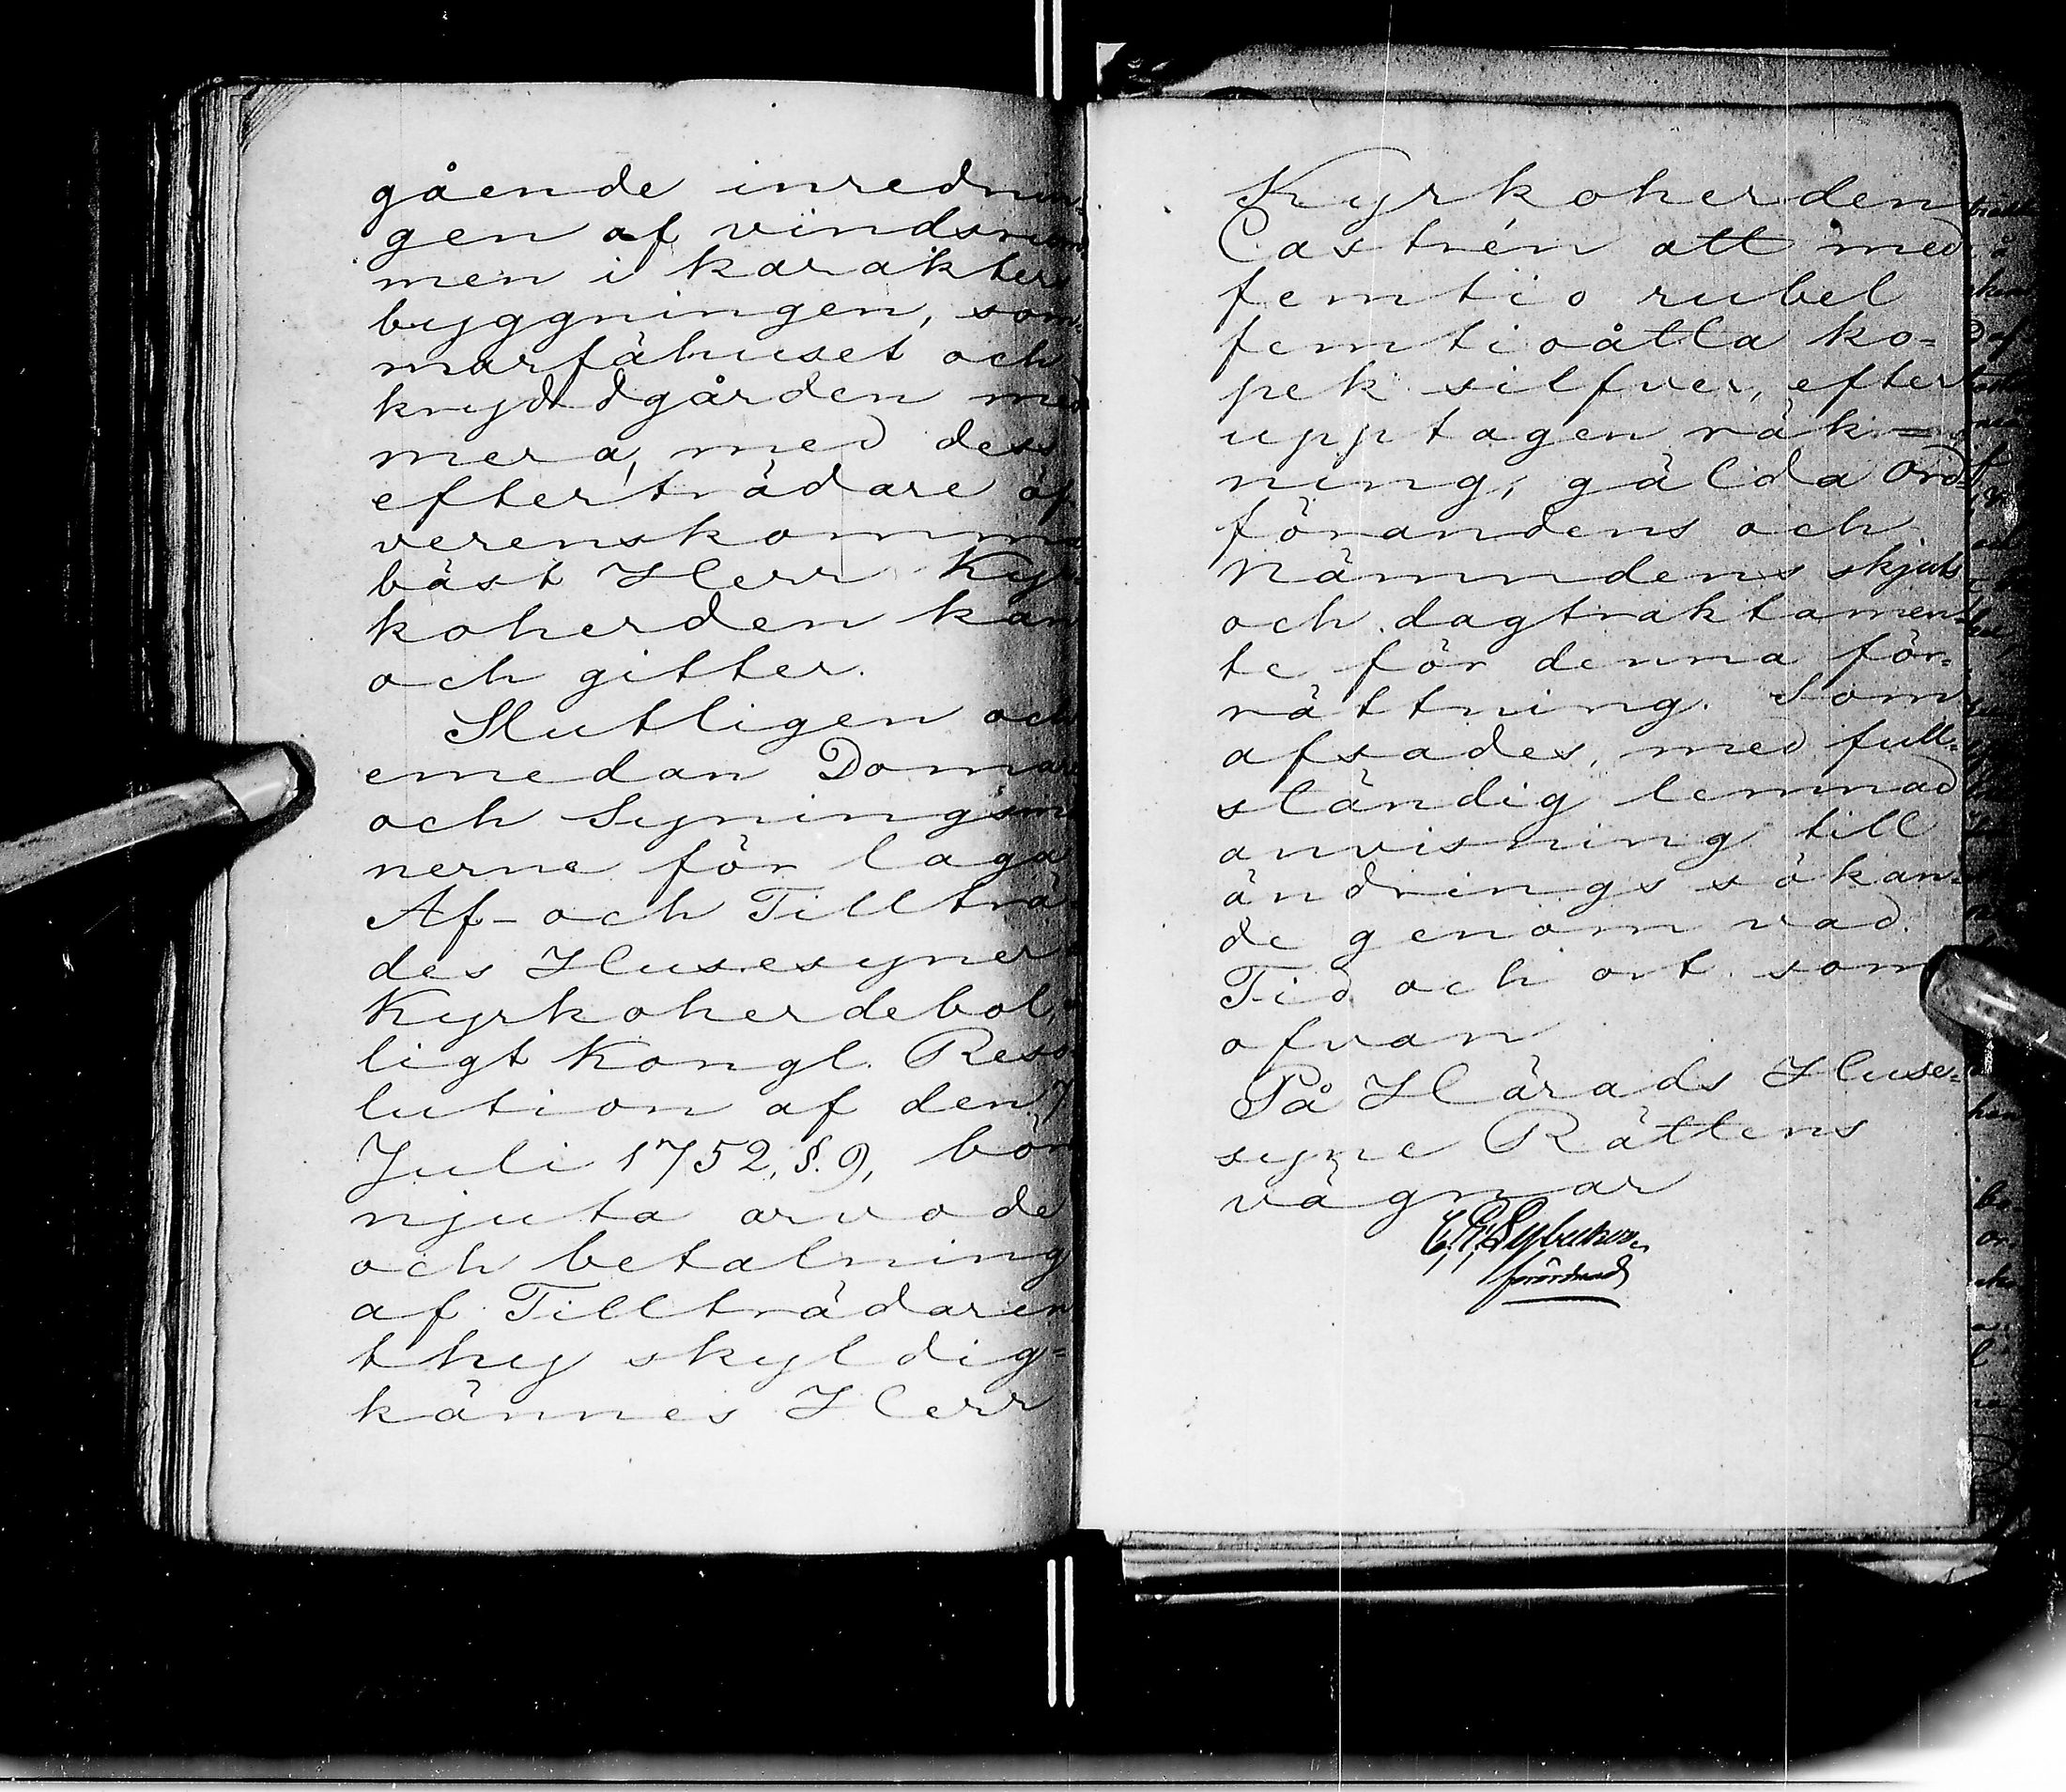 gående inrednin-
gen af vindsrum
men i karakters
byggningen, som-
marfähuset och
kryddgården med
mera, med dess
efterträdare öf
verenskomma
bäst Herr Kyr-
koherden kan
och gitter.
Slutligen och
emedan Domar
och Syningsmä
nerne för laga
Af- och Tillträ-
des Husesyner
Kyrkoherdebol,
ligt Kongl. Reso
lution af den 7
Juli 1752, §. 9, bör
njuta arvode
och betalning
af Tillträdaren
thy skyldig-
kännes Herr
Kyrkoherden
Castrén att med
femtio rubel
femtioåtta ko-
pek silfver, efter
upptagen räk-
ning, gälda Ord-
förandens och
Nämndens skjuts
och dagtraktamen-
te för denna för-
rättning. Som
afsades, med full-
ständig lemnad
anvisning till
ändrings sökan-
de genom vad.
Tid och ort som
ofvan
På Härads Huse-
syne Rättens
vägnar
förordnad